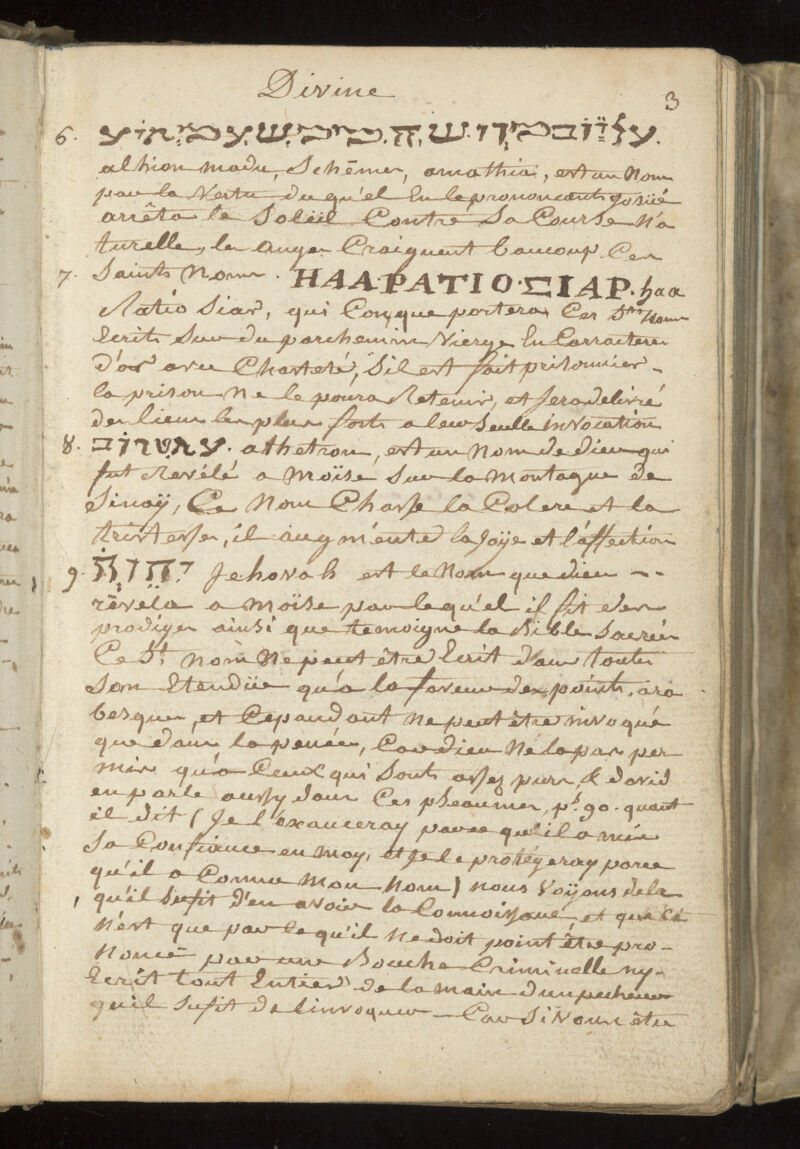 Divine
3
6.
alhion madu, Schêmer, amathia, est un Nom
par la Vertu du qu'el En le prononcant Josüé
arrêta le Soleïl Contre Sa Course Na
turelle, les Anges Craignent baucoup Ces
7. Saints Noms. HAA·PATIO·ΣIAP. haa
Ratio Siar, qui Conque portera Ces Sts Noms
Ecrits Sur du parchemin Vierge En Carracteres
d'or avec Chasteté, S'il est fait prisonnier -
la prison Ne le poura Retenir, et Sera delivré
des lieux les plus forts a leur Seulle invocation
8. athetron, est un Nom de Dieu qui
fut Revélé a Moïse Sur la Montagne de
Sinaÿ, Ce Nom Chasse la Colere et la
tristesse, il augmente la Joÿe et l'affection
9. יהוה Jehovah est le Nom que dieu --
rêvéla a Moïse par le qu'el il fit des
prodiges ainsi que temoigne la Bible Sacrée
Ce St. Nom Ne peut être Ecrit dans toute
Son Etendüe qu'a la faveur des points, ara
besques, et Cependant Ne peut être invoqué
que dans la pensée, Car dieu Ne la pas per
mis qu'a Ceux qui Sont assés purs, & david
en parle aussy dans Ces pseaumes, ps. 90. quant
il dit ( Je l'exauceray parce qu'il a mis
Sa Confiance en Moy, et Je le protégeray parce
qu'il a Connu Mon Nom ) nous Voÿons de la
qu'il Sufit d'en avoir la Connoissance, et que Ce
N'est que par le qu'il Ne doit point être pro-
Noncé par une Bouche Criminelle ny
Ecrit tout Entier de la main d'un pecheur
qu'il Sufit de l'invoquer - Car Si Nous être